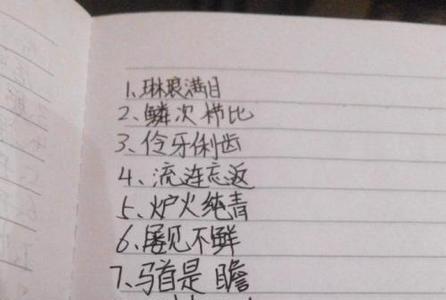 1、琳琅满目
2、鳞次栉比
3、伶牙俐齿
4、流连忘返
5、炉火纯青
6、屡见不鲜
7、马首是瞻